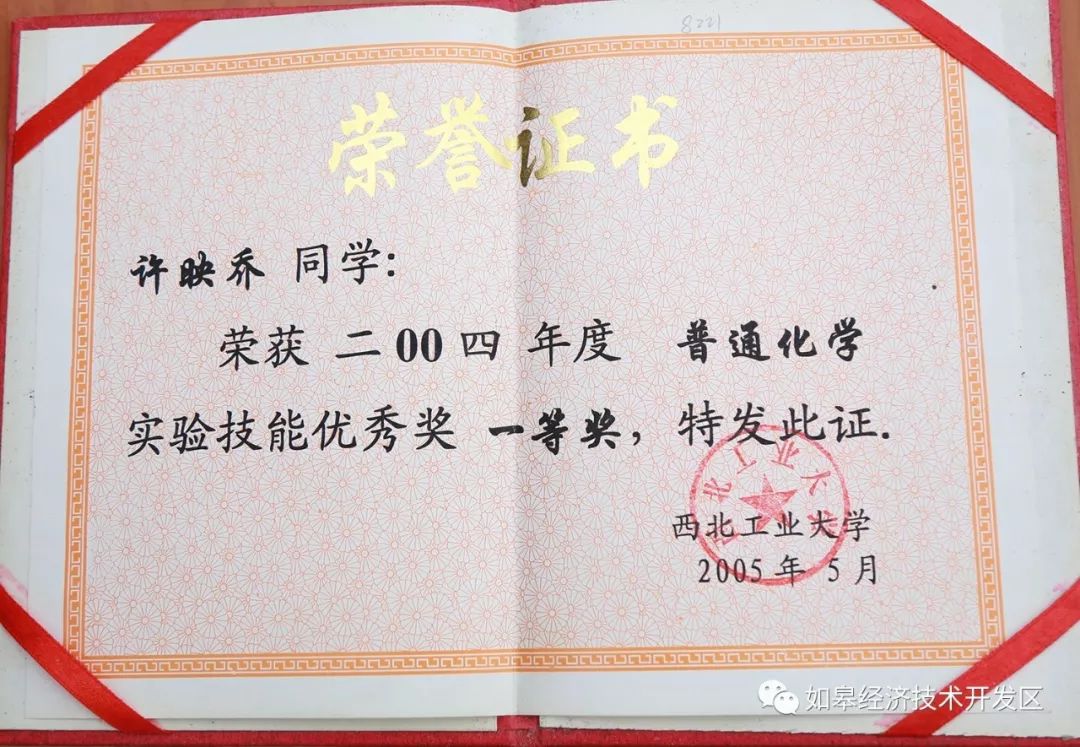 8221
荣誉证书
许映乔 同学:
荣获 二00四 年度 普通化学
实验技能优秀奖 一等奖, 特发此证.
西北工业大学
2005 年 5 月
如皋经济技术开发区